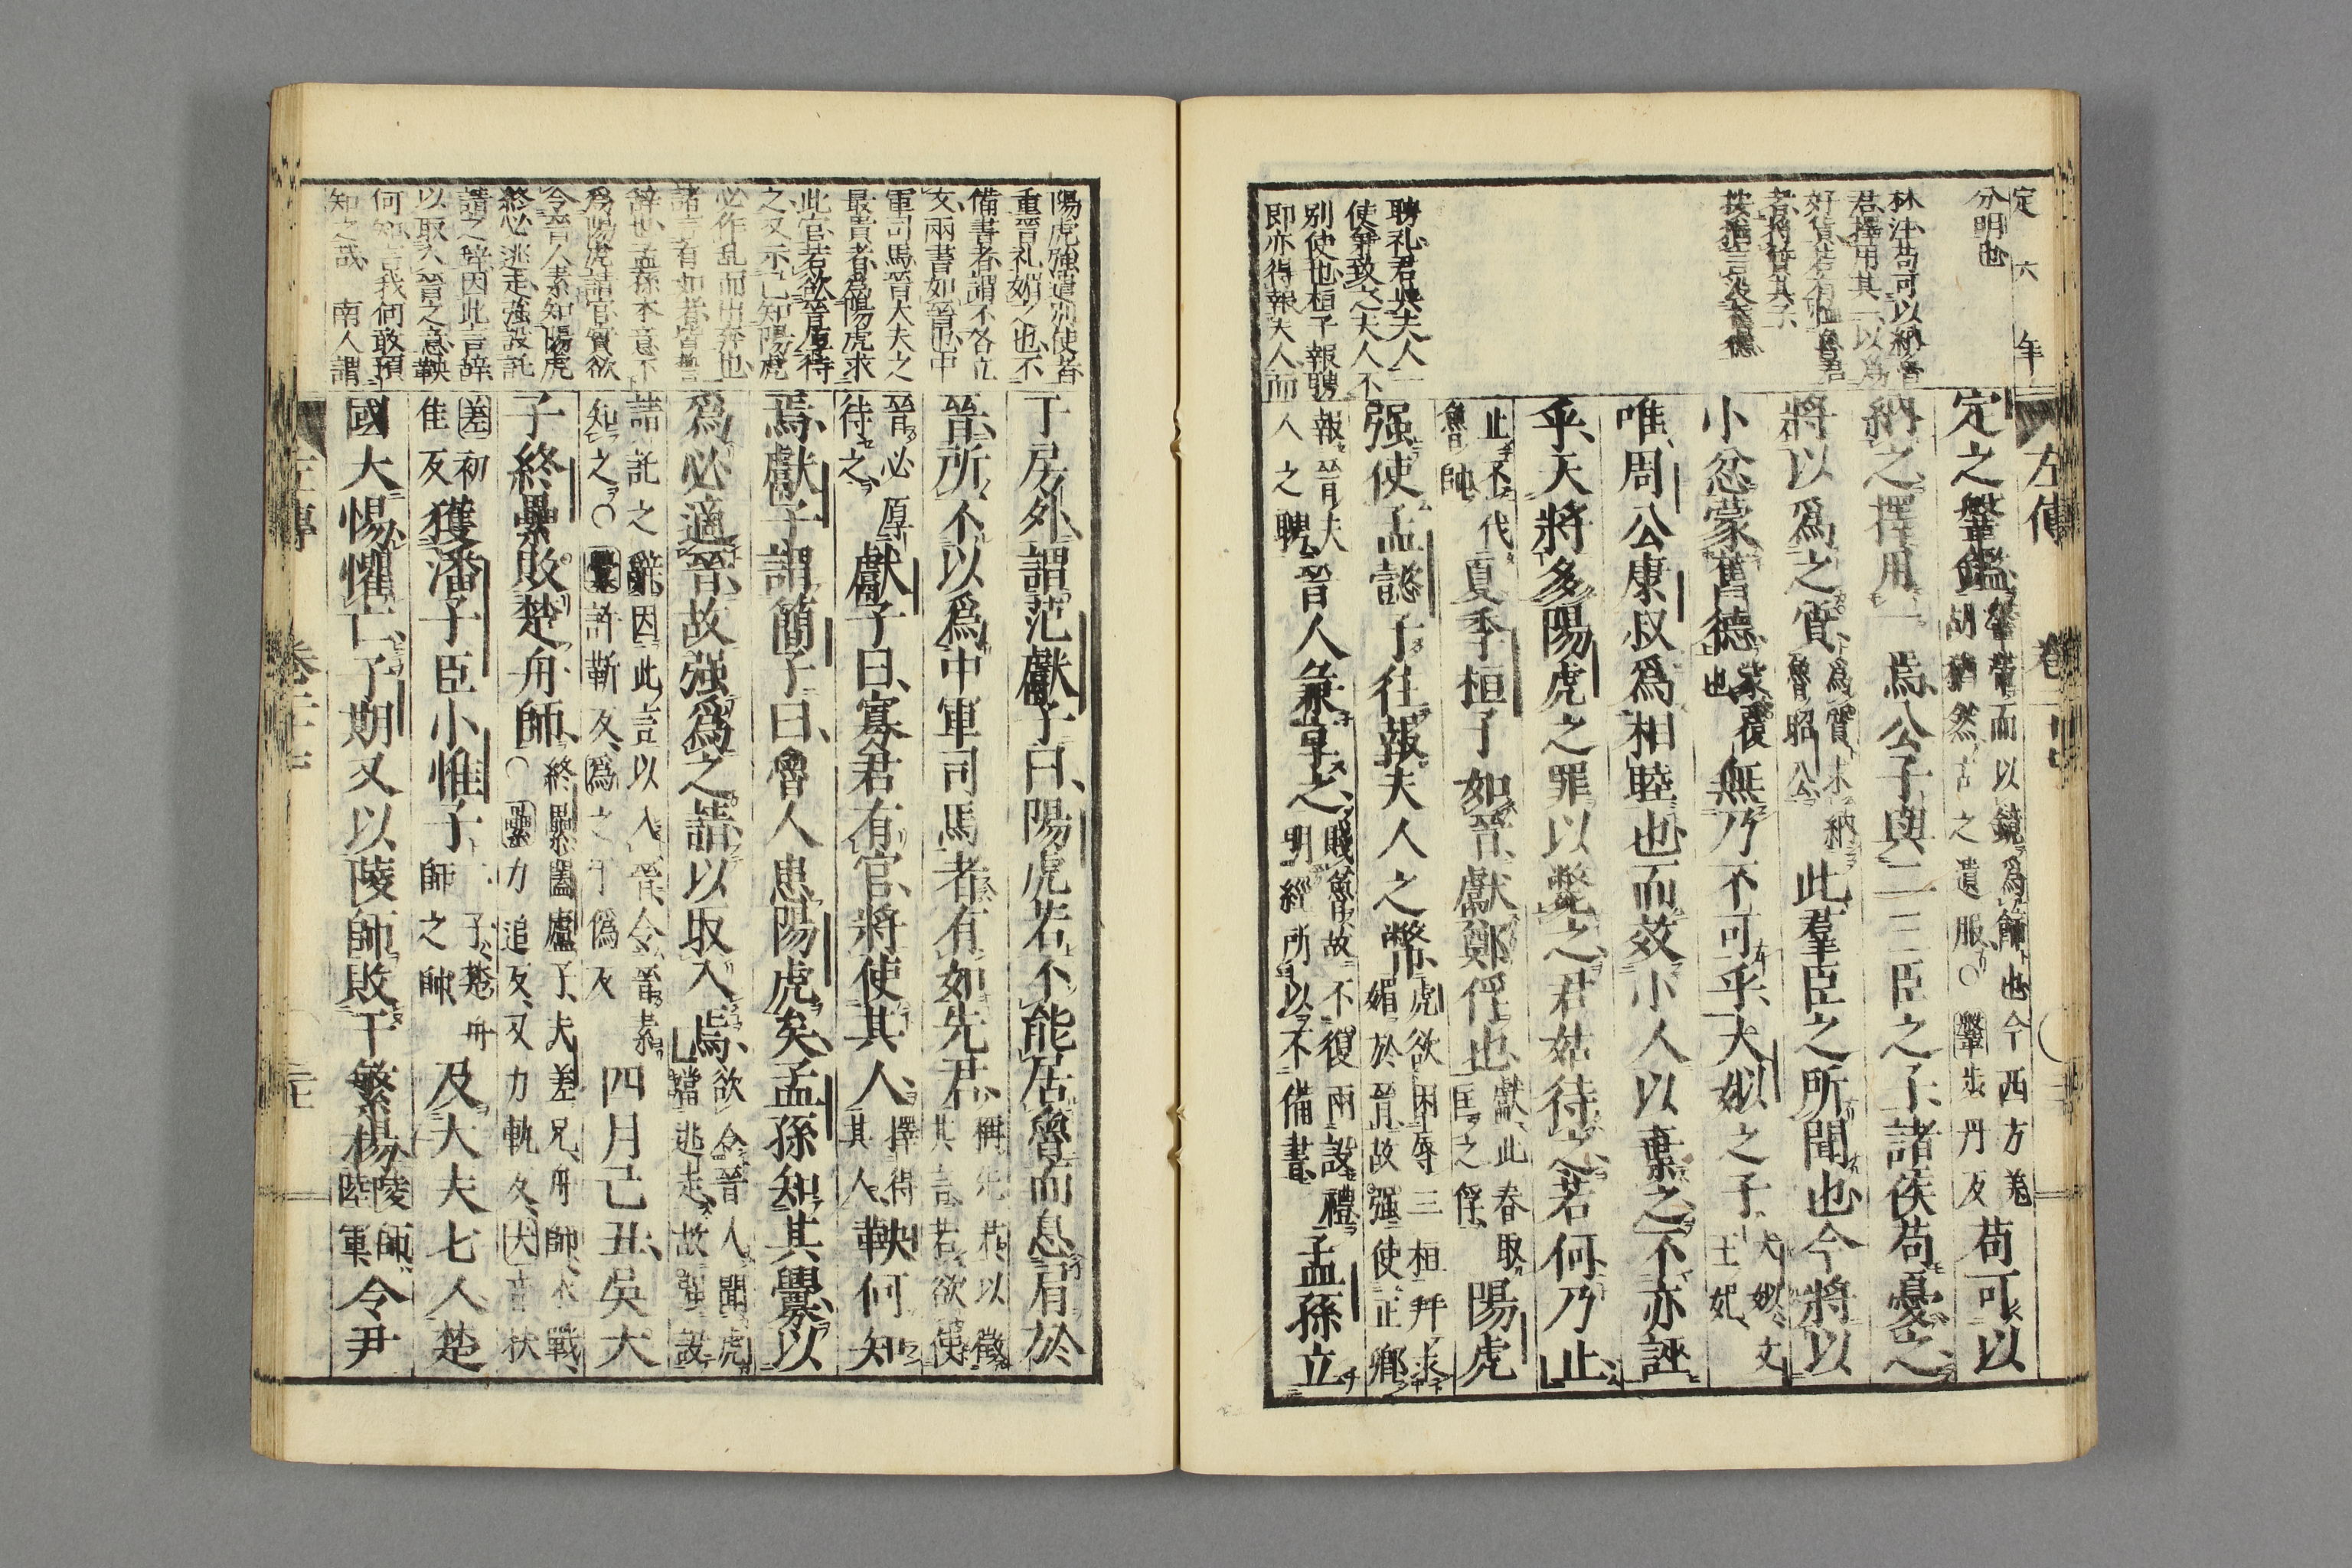 定 六 年
分明也
林注苟可以納魯
君擇用其一以爲
好貨若有
者將質其子
聘礼君與夫人一
使第致之夫人不
別使也桓子報聘
即亦得報夫人而
左傳 卷二十
定之鞶鑑鞶帶而以鏡爲飾也今西方羌
胡猶然古之遺服○鞶步丹反苟可以
納之擇用一焉公子與二三臣之子諸侯苟憂之
將以爲之質爲質求納魯昭公此羣臣之所聞也今將以
小忿蒙舊德蒙覆也無乃不可乎大姒之子大姒文王妃
唯周公康叔爲相睦也而效小人以棄之不亦誣
乎天將多陽虎之罪以斃之君姑待之若何乃止
止不伐魯師夏季桓子如晉獻鄭俘也獻此春取匡之俘陽虎
强使孟懿子往報夫人之幣虎欲困辱三桓并求媚於晉故强使正卿
報晉夫人之聘晉人兼享之賤魯故不復兩設禮明經所以不備書孟孫立
陽虎强遣別使者
重晉礼媚之也不
備書者謂不各立
文兩書如晉也中
軍司馬晉大夫之
最貴者爲陽虎求
此官若欲晉厚待
之又示已知陽虎
必作乱而出奔也
諸言有如者皆誓
辞也孟孫本意不
爲陽虎請官實欲
令晉人素知陽虎
終必逃走強設託
請之辞因此言辞
以取入晉之意鞅
何知言我何敢預
知之哉 南人謂
于房外謂范獻子曰陽虎若不能居魯而息肩於
晉所不以爲中軍司馬者有如先君稱先君以徵其言若欲使
晉必厚待之獻子曰寡君有官將使其人擇得其人鞅何知
焉獻子謂簡子曰魯人患陽虎矣孟孫知其釁以
爲必適晉故强爲之請以取入焉欲令晉人聞虎當逃走故强設
請託之辭因此言以入晉令晉素知之○釁許靳反爲之于僞反四月己丑吳大
子終纍敗楚舟師終纍闔廬子夫差兄舟師水戰○纍力追反又力軌反大音泰
差初佳反獲潘子臣小惟子二子楚舟師之帥及大夫七人楚
國大惕懼亡子期又以陵師敗于繁揚陵師陸軍令尹
左傳 卷二十